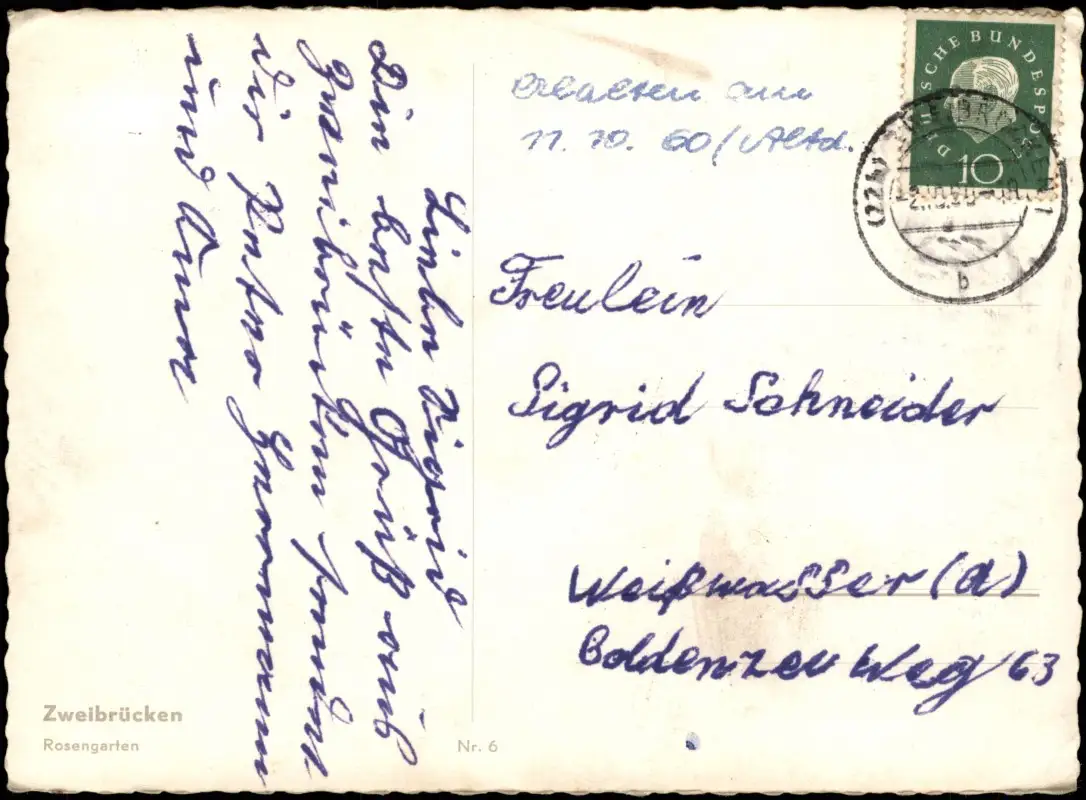 Liebe Sigrid
Die besten Grüß aus
Zweibrücken senden
dir Petra Herrmann
und Oma
Erhalten am
11. 10. 60 / Altd.
DEUTSCHE BUNDESPOST
10
(22b) ZWEIBRÜCKEN
b
Freulein
Sigrid Schneider
Weißwasser (a)
Weg 63
Zweibrücken
Rosengarten
Nr. 6